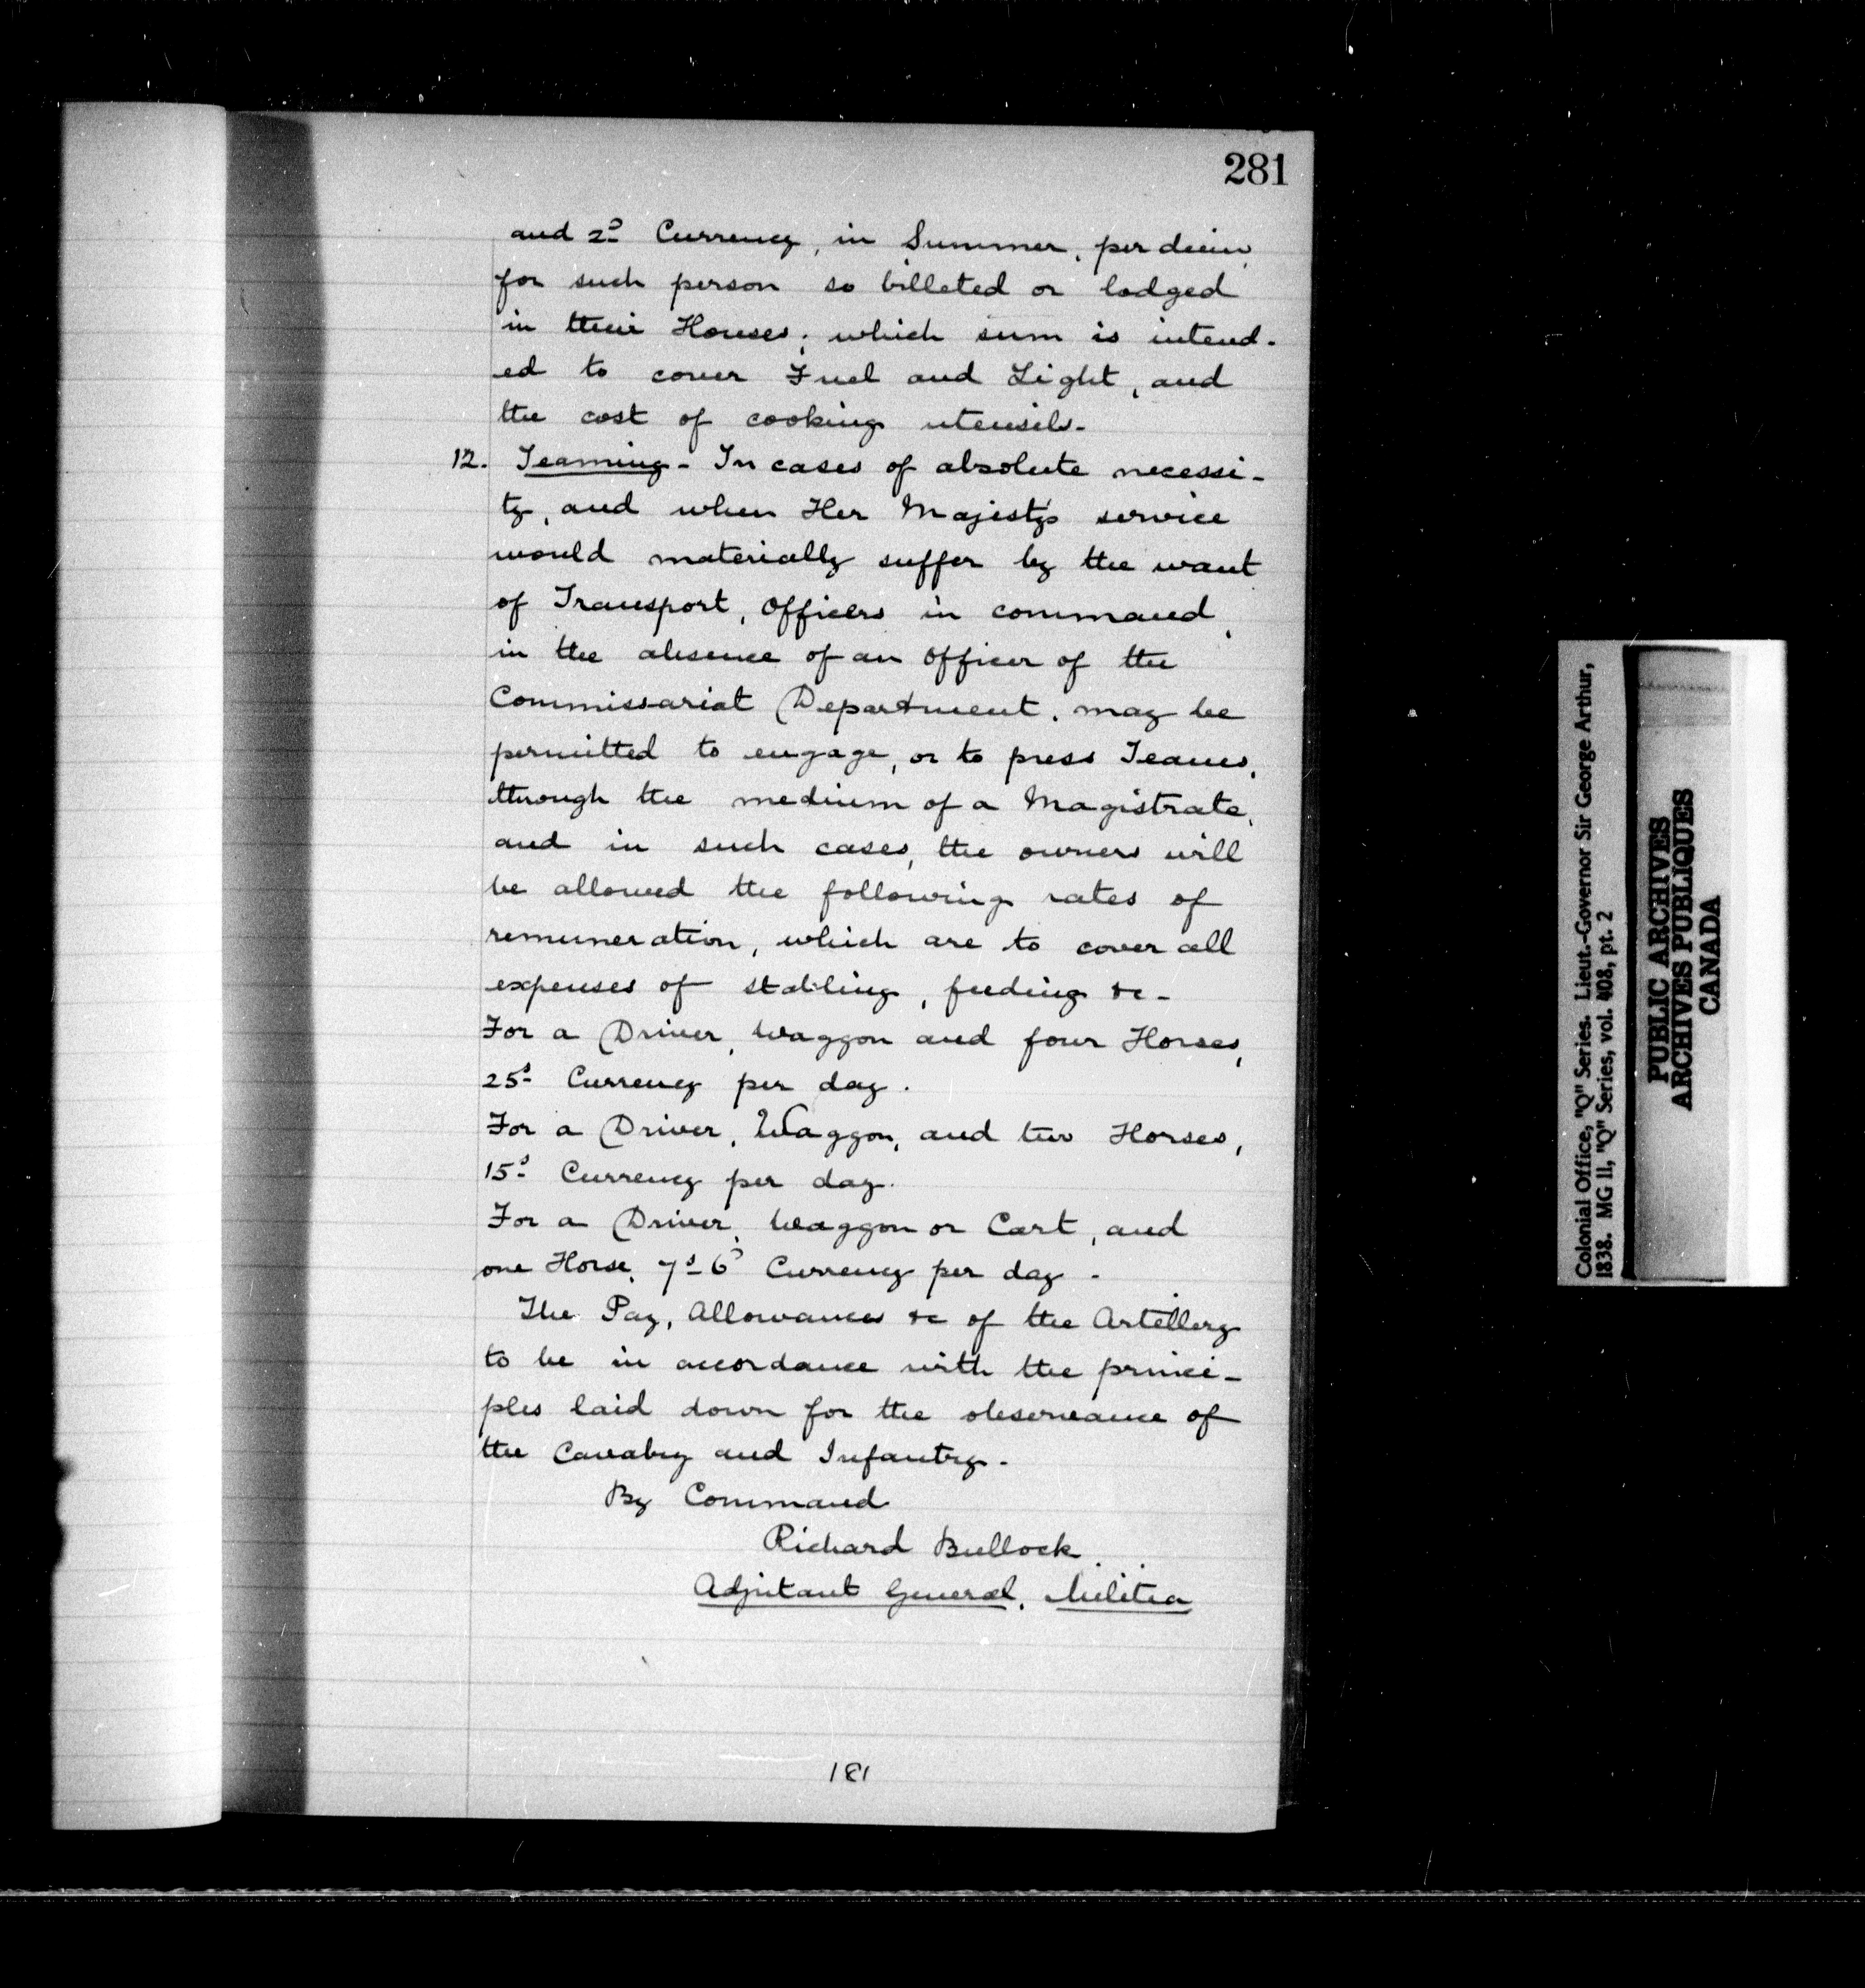 281
and 2d Currency, in Summer, per diem,
for such person so billeted or lodged
in their Houses; which sum is intend-
ed to cover Fuel and Light, and
the cost of cooking utensils-
12. Teaming - In cases of absolute necessi-
ty, and when Her Majesty's service
would materially suffer by the want
of Transport, Officers in command,
in the absence of an Officer of the
Commissariat Department, may be
permitted to engage, or to press Teams,
through the medium of a Magistrate,
and in such cases, the owners will
be allowed the following rates of
remuneration, which are to cover all
expenses of stabling, feeding &c-
For a Driver, Waggon and four Horses,
25s Currency per day.
For a Driver, Waggon, and two Horses,
15s Currency per day.
For a Driver, Waggon or Cart, and
one Horse, 7s 6d Currency per day -
The Pay, Allowances &c of the Artillery
to be in accordance with the princi-
ples laid down for the observance of
the Cavalry and Infantry-
By Command
Richard Bullock
Adjutant General, Militia
181
Colonial Office, "Q" Series. Lieut.-Governor Sir George Arthur,
1838. MG 11, "Q" Series, vol. 408, pt. 2
PUBLIC ARCHIVES
ARCHIVES PUBLIQUES
CANADA